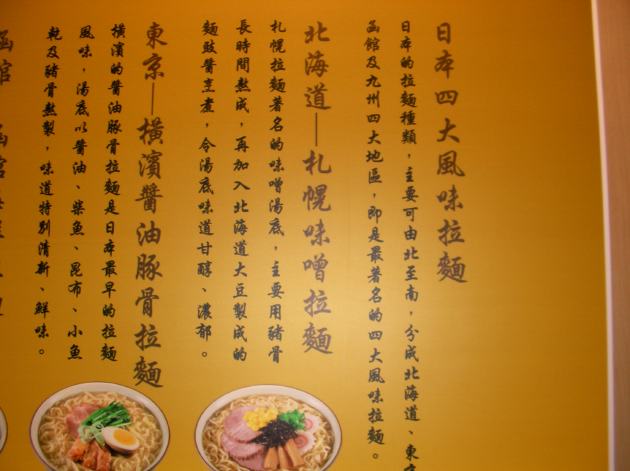 日本四大風味拉麵
日本的拉麵種類，主要可由北至南，分成北海道、東
函館及九州四大地區，即是最著名的四大風味拉麵。
北海道—札幌味噌拉麵
札幌拉麵著名的味噌湯底，主要用豬骨
長時間熬成，再加入北海道大豆製成的
麵豉醬烹煮，令湯底味道甘醇、濃郁。
東京—橫濱醬油豚骨拉麵
橫濱的醬油豚骨拉麵是日本最早的拉麵
風味，湯底以醬油、柴魚、昆布、小魚
乾及豬骨熬製，味道特別清新、鮮味。
函館